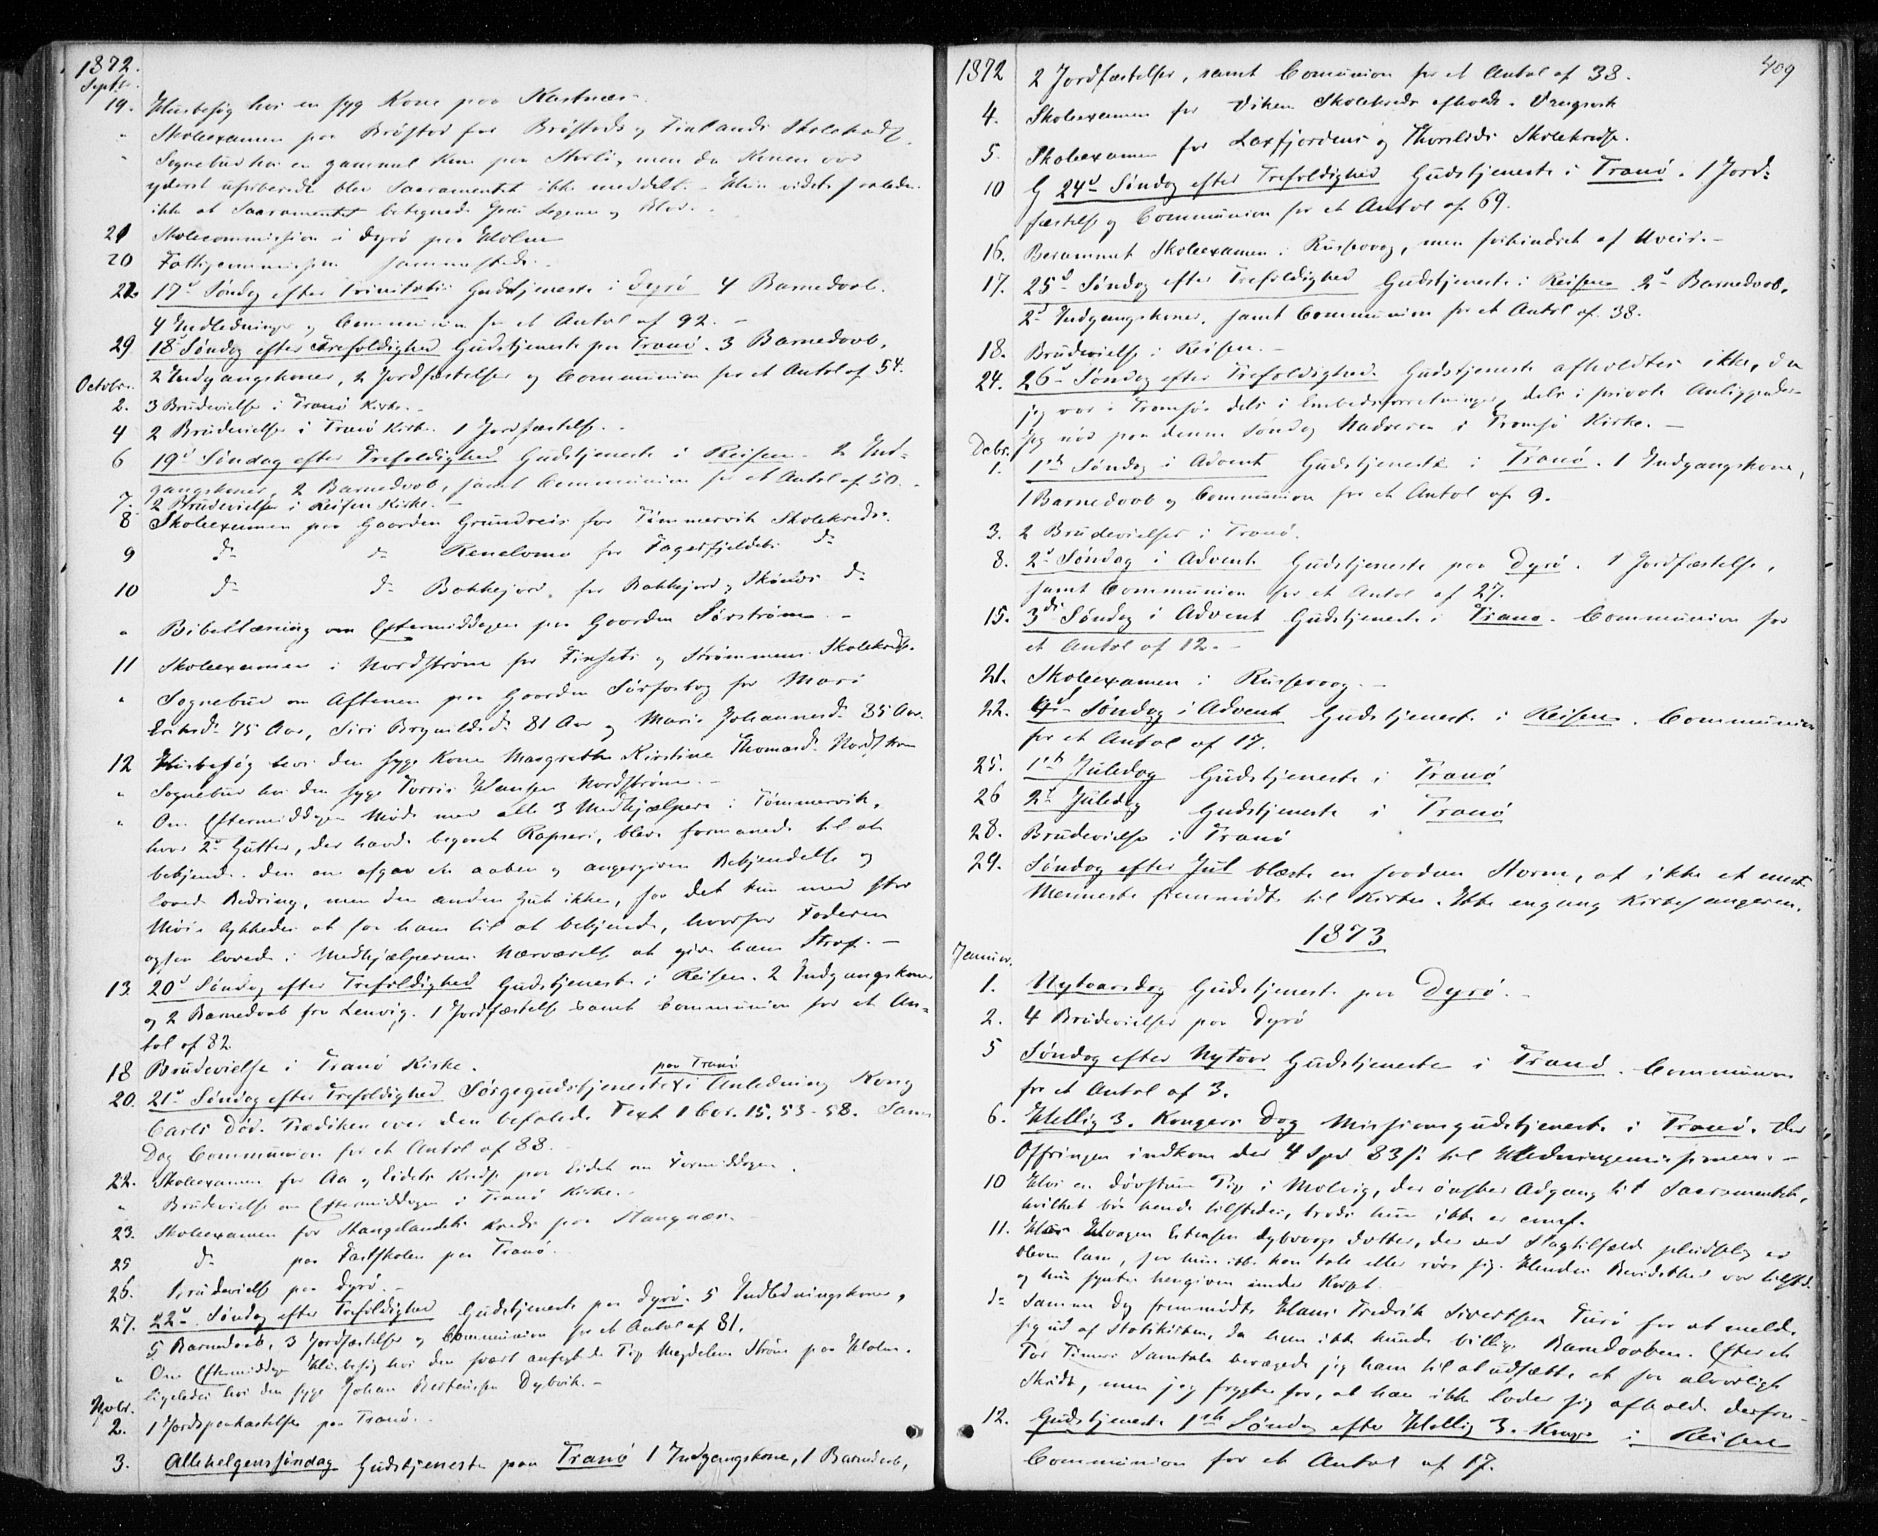 1872.
Septbr.
19. Huusbesøg hos en syg Kone paa Kastnæs.
" Skoleexamen paa Brøstad for Brøstads og Finlands Skolekreds.
" Sognebud hos en gammel Kone paa men da Konen var
yderst uforberedt blev Sacramentet ikke meddelt. - Hun vidste saaledes
ikke at Sacramentet betegnede Jesu Legeme og Blod. -
21 Skolecommission i Dyrø paa Holm
20 Fattigcommission sammesteds. -
22. 17de Søndag efter Trinitatis Gudstjeneste i Dyrø 4 Barnedaab.
4 Indledninger og Communion for et Antal af 92. -
29 18de Søndag efter Trefoldighed Gudstjeneste paa Tranø. 3 Barnedaab,
2 Indgangskoner, 2 Jordfæstelser og Communion for et Antal af 54.
Octobr.
2. 3 Brudevielser i Tranø Kirke. -
4 2 Brudevielser i Tranø Kirke. 1 Jordfæstelse. -
6 19de Søndag efter Trefoldighed Gudstjeneste i Reisen. 2 Ind-
gangskoner, 2 Barnedaab, samt Communion for et Antal af 50. -
7. 2 Brudevielser i Reisen Kirke. -
8 Skoleexamen paa Gaarden Grundreis for Tømmervik Skolekreds.
9 do do Renelomo for Fagerfjeldets do
10 do do Bakkejord, for Bakkejord og do
" Bibellæsning om Eftermiddagen paa Gaarden Sørstrømen. -
11 Skoleexamen i Nordstrøm for Finsets og Strømmens Skolekreds.
" Sognebud om Aftenen paa Gaarden Sørfosbog for Mari
Eriksd. 75 Aar, Siri Brynildsd. 81 Aar og Maris Johannesd. 35 Aar.
12 Huusbesøg hos den syge Kone Margrethe Kirstine Thomasd. Nordstrøm
" Sognebud hos den syge Torris Hansen Nordstrøm. -
" Om Eftermiddagen Møde med alle 3 Medhjælpere i Tømmervik,
hvor 2de Gutter, der havde begaaet Rapseri, bleve formanede til at
bekjende. den ene afgav en aaben og angergiven Bekjendelse og
lovede Bedring, men den anden Gut ikke, saa det kun med stor
Møie lykkedes at faa ham til at bekjende, hvorfor Faderen
ogsaa lovede i Medhjælpernes Nærværelse at give ham Straf. -
13. 20de Søndag efter Trefoldighed Gudstjeneste i Reisen. 2 Indgangskoner
og 2 Barnedaab fra Lenvig. 1 Jordfæstelse samt Communion for et An-
tal af 82.
18 Brudevielse i Tranø Kirke.
paa Tranø
20. 21de Søndag efter Trefoldighed Sørgegudstjeneste i Anledning Kong
Carls Død. Prædiken over den befalede Text 1 Cor. 15, 53-58. Samme
Dag Communion for et Antal af 88.
22. Skoleexamen for Aa og Eidets Kreds paa Eidet om Formiddagen.
" Brudevielse om Eftermiddagen i Tranø Kirke. -
23. Skoleexamen for Stangelandets Kreds paa Stangnæs.
25 do paa Fastskolen paa Tranø.
26. Brudevielse paa Dyrø. -
27. 22de Søndag efter Trefoldighed Gudstjeneste paa Dyrø. 5 Indledningskoner,
5 Barnedaab, 3 Jordfæstelser og Communion for et Antal af 81.
" Om Eftermiddagen Huusbesøg hos den svært anfægtede Pige Magdelene Strøm paa Holm.
ligeledes hos den syge Johan Dybvik. -
Novbr.
2. 1 Jordspaakastelse paa Tranø. -
3. Allehelgenssøndag Gudstjeneste paa Tranø 1 Indgangskone, 1 Barnedaab,
409
1872 2 Jordfæstelser, samt Communion for et Antal af 38.
4. Skoleexamen for Viken Skolekreds afholdt i Vangsvik
5. Skoleexamen for Laxfjordens og Skolekredse.
10 24de Søndag efter Trefoldighed Gudstjeneste i Tranø. 1 Jord-
fæstelse og Communion for et Antal af 69.
16. Berammet Skoleexamen i Russevaag, men forhindret af Uveir. -
17. 25de Søndag efter Trefoldighed Gudstjeneste i Reisen 2de Barnedaab,
2de Indgangskoner, samt Communion for et Antal af 38.
18. Brudevielse i Reisen. -
24. 26de Søndag efter Trefoldighed. Gudstjeneste afholdtes ikke, da
jeg var i Tromsø dels i Embedsforretninger, dels i private Anliggender
jeg nød paa denne Søndag Nadveren i Tromsø Kirke. -
Decbr.
1. 1ste Søndag i Advent Gudstjeneste i Tranø. 1 Indgangskone,
1 Barnedaab og Communion for et Antal af 9.
3. 2 Brudevielser i Tranø.
8. 2den Søndag i Advent Gudstjeneste paa Dyrø. 1 Jordfæstelse,
samt Communion for et Antal af 27.
15. 3die Søndag i Advent Gudstjeneste i Tranø. Communion for
et Antal af 12. -
21. Skoleexamen i Russevaag. -
22. 4de Søndag i Advent Gudstjeneste i Reisen. Communion
for et Antal af 17.
25. 1ste Juledag Gudstjeneste i Tranø
26 2den Juledag Gudstjeneste i Tranø
28. Brudevielse i Tranø
29. Søndag efter Jul blæste en saadan Storm, at ikke et enest
Menneske fremmødte til Kirke. Ikke engang Kirkesangeren.
1873
Januar.
1. Nytaarsdag Gudstjeneste paa Dyrø. -
2. 4 Brudevielser paa Dyrø
5 Søndag efter Nytaar Gudstjeneste i Tranø. Communion
for et Antal af 3.
6. Hellig 3. Kongers Dag Missionsgudstjeneste i Tranø. Ved
Offringen indkom der 4 Spd 83 s. til Hedningemissionen. -
10 Hos en døvstum Pige i Molvig, der ønsker Adgang til Sacramentet,
hvilket bør hende tilstedes, trods hun ikke er conf.
11. Hos Haagen Estensen Dybvaags Datter, der ved Slagtilfælde pludselig er
bleven lam, saa hun ikke kan tale eller røre sig. Hendes Bevidsthed var tilstede
og hun syntes hengiven under Korset.
do Samme Dag fremmødte Hans Fredrik Sivertsen Turø for at melde
sig ud af Statskirken, da han ikke kunde billige Barnedaaben. Efter et
Par Timers Samtale bevægede jeg ham til at udsætte et saa alvorligt
Skridt, men jeg frygter for, at han ikke lader sig afholde derfra. -
12. Gudstjeneste 1ste Søndag efter Hellig 3. Konge i Reisen
Communion for et Antal af 17.